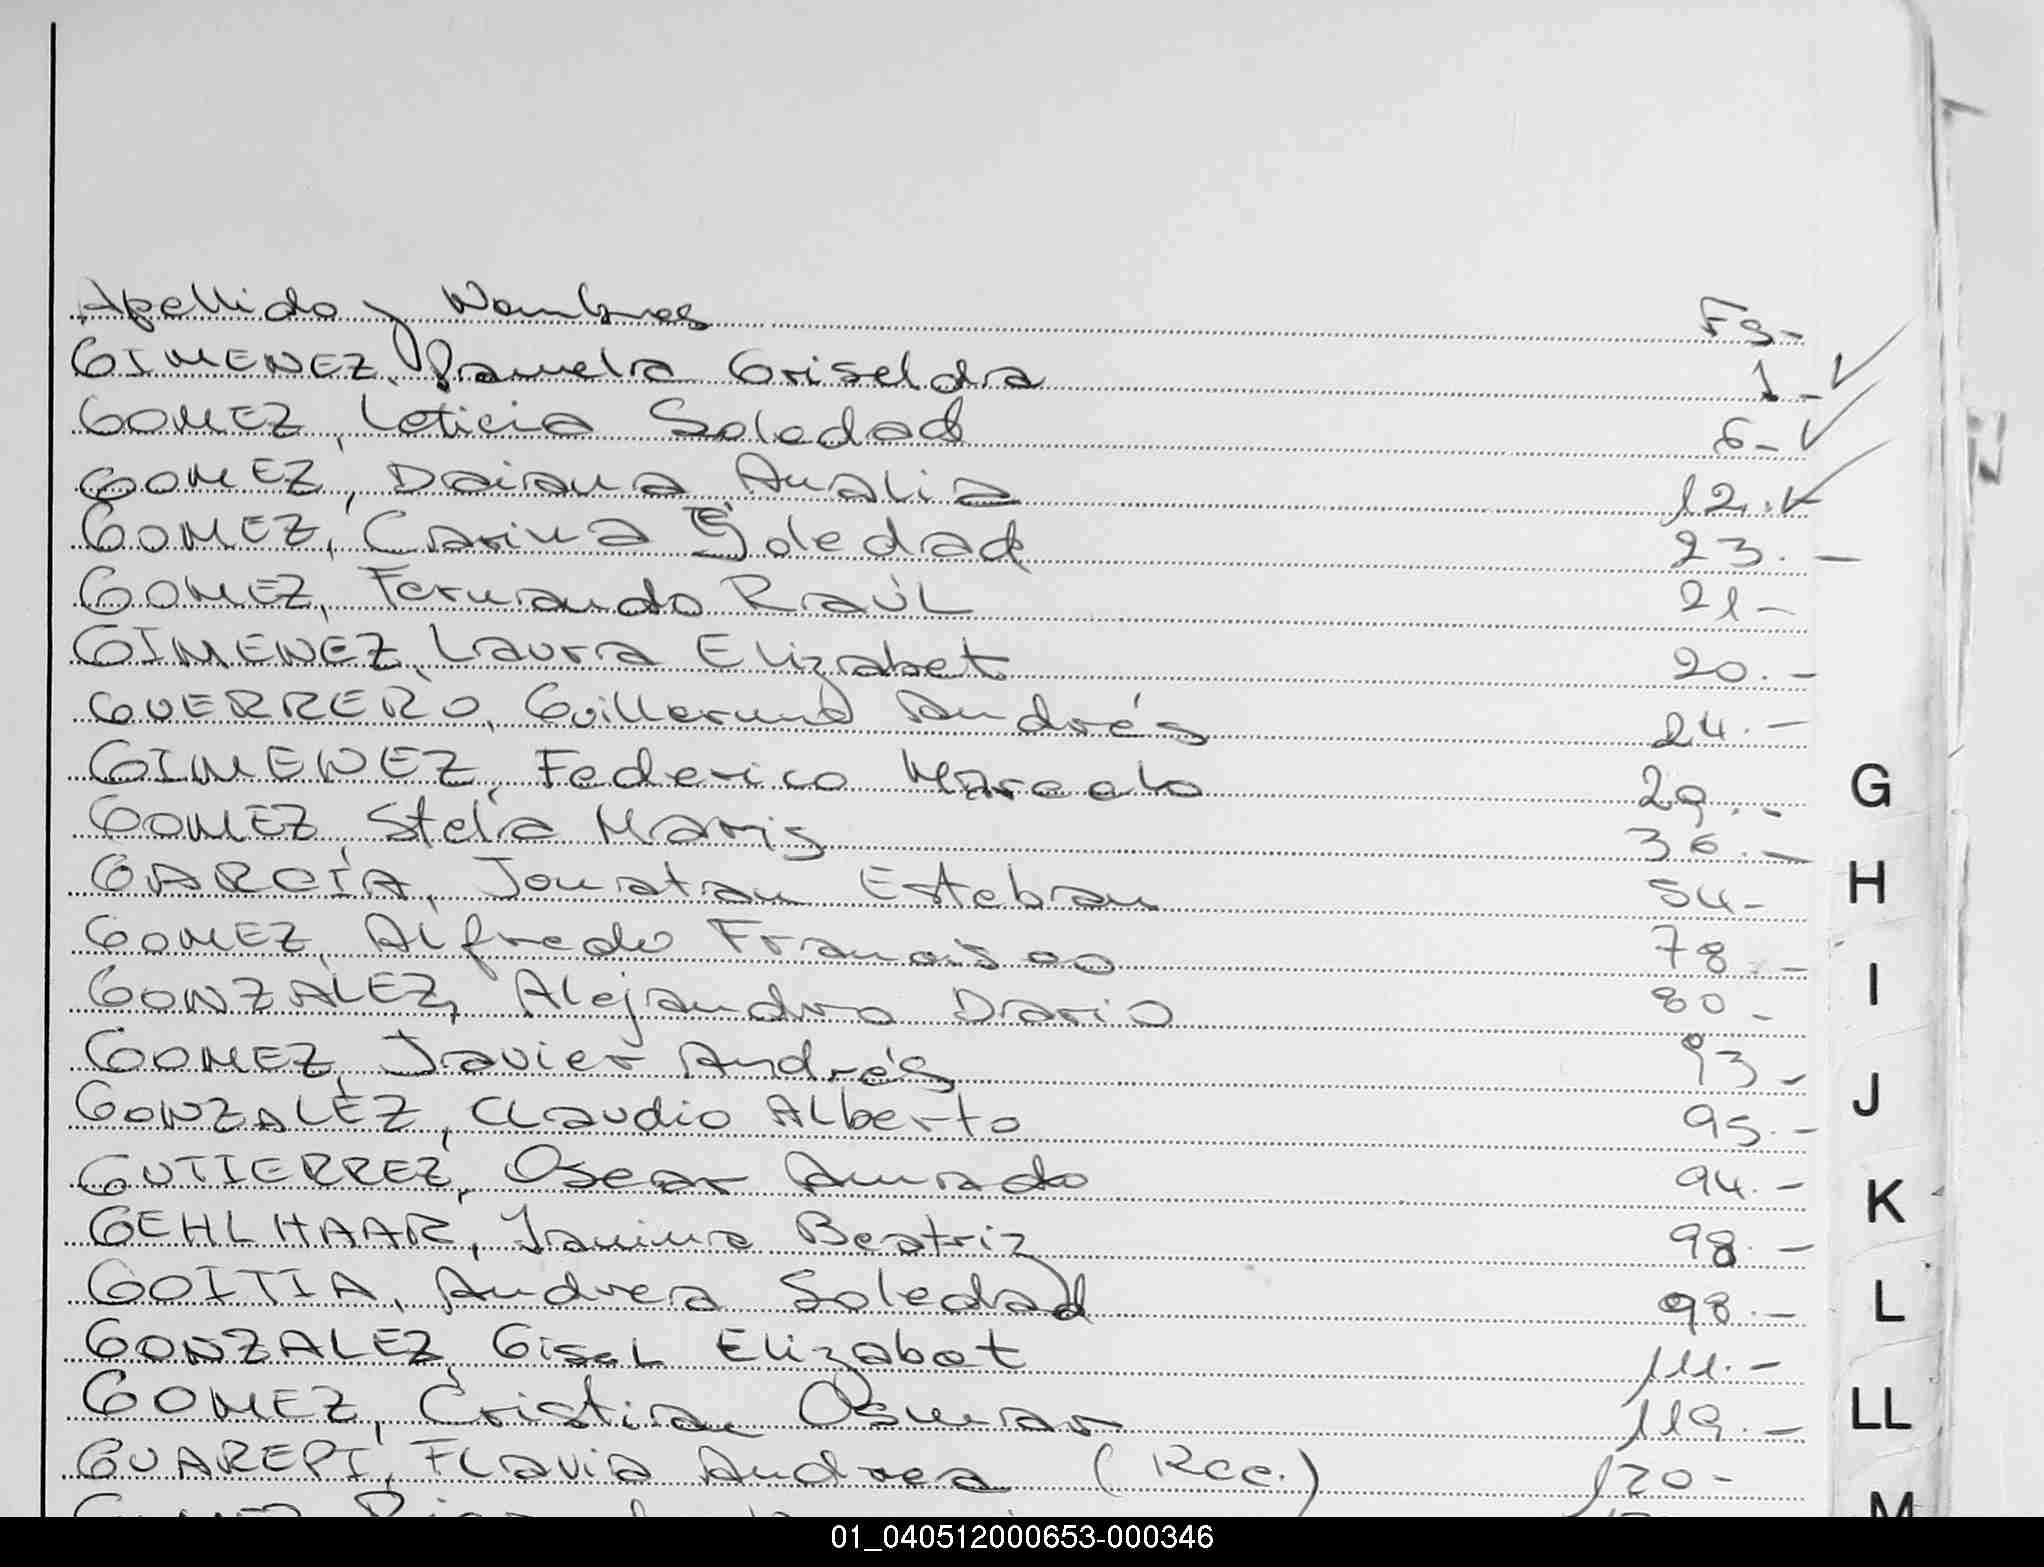 Apellido y Nombres Fs-
GIMENEZ, Pamela Griselda 1.-
GOMEZ, Leticia Soledad 6-
GOMEZ, Daiana Analia 12.-
GOMEZ, Carina Soledad 23.-
GOMEZ, Fernando RaúL 21-
GIMENEZ, Laura Elizabet 20.-
GUERRERO, Guillermo Andrés 24.-
GIMENEZ, Federico Marcelo 29.-
GOMEZ, Stela Maris 36.-
GARCÍA, Jonatan Esteban 54-
GOMEZ, Alfredo Francisco 78.-
GONZALEZ, Alejandro Dario 80-
GOMEZ, Javier Andrés 93-
GONZALEZ, Claudio Alberto 95.-
GUTIERREZ, Oscar Amado 94.-
GEHLHAAR, Janina Beatriz 98.-
GOITIA, Andrea Soledad 98.-
GONZALEZ, Gisel Elizabet 111.-
GOMEZ, Cristian Osmar 119.-
GUAREPI, Flavia Andrea (Rcc.) 120-
G
H
I
J
K
L
LL
M
01_040512000653-000346